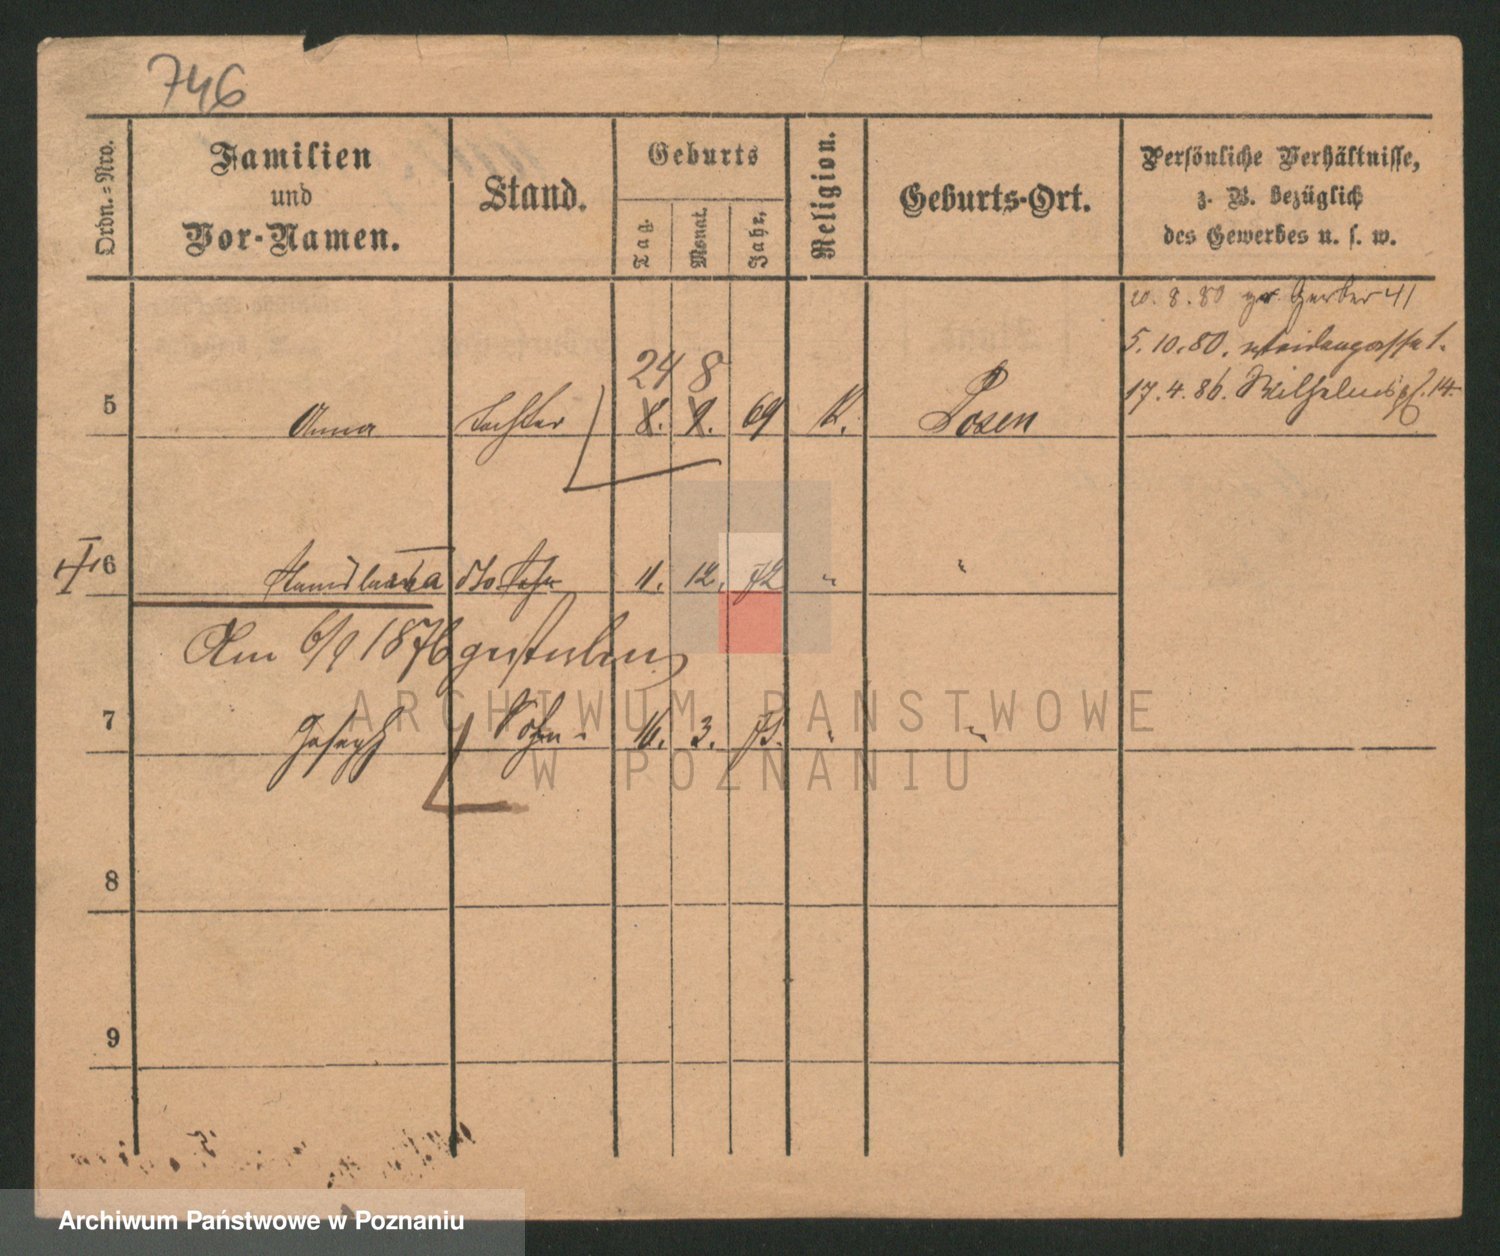 746
Ordn.=Nro.
Familien
und
Vor-Namen.
Stand.
Geburts
Tag.
Monat.
Jahr,
Religion.
Geburts-Ort.
Persönliche Verhältnisse,
z. B. bezüglich
des Gewerbes u. s. w.
10.8.80 gr. Gerber 41
5.10.80. Weidengasse 1.
17.4.86. Wilhelmspl. 14.
24 8
5 Anna Tochter 8. 9. 69 K. Posen
6 dto 11. 12. 72 " "
Am 6/9 1876 gestorben
7 Joseph Sohn 16. 3. " "
8
9
ARCHIWUM PAŃSTWOWE
W POZNANIU
Archiwum Państwowe w Poznaniu